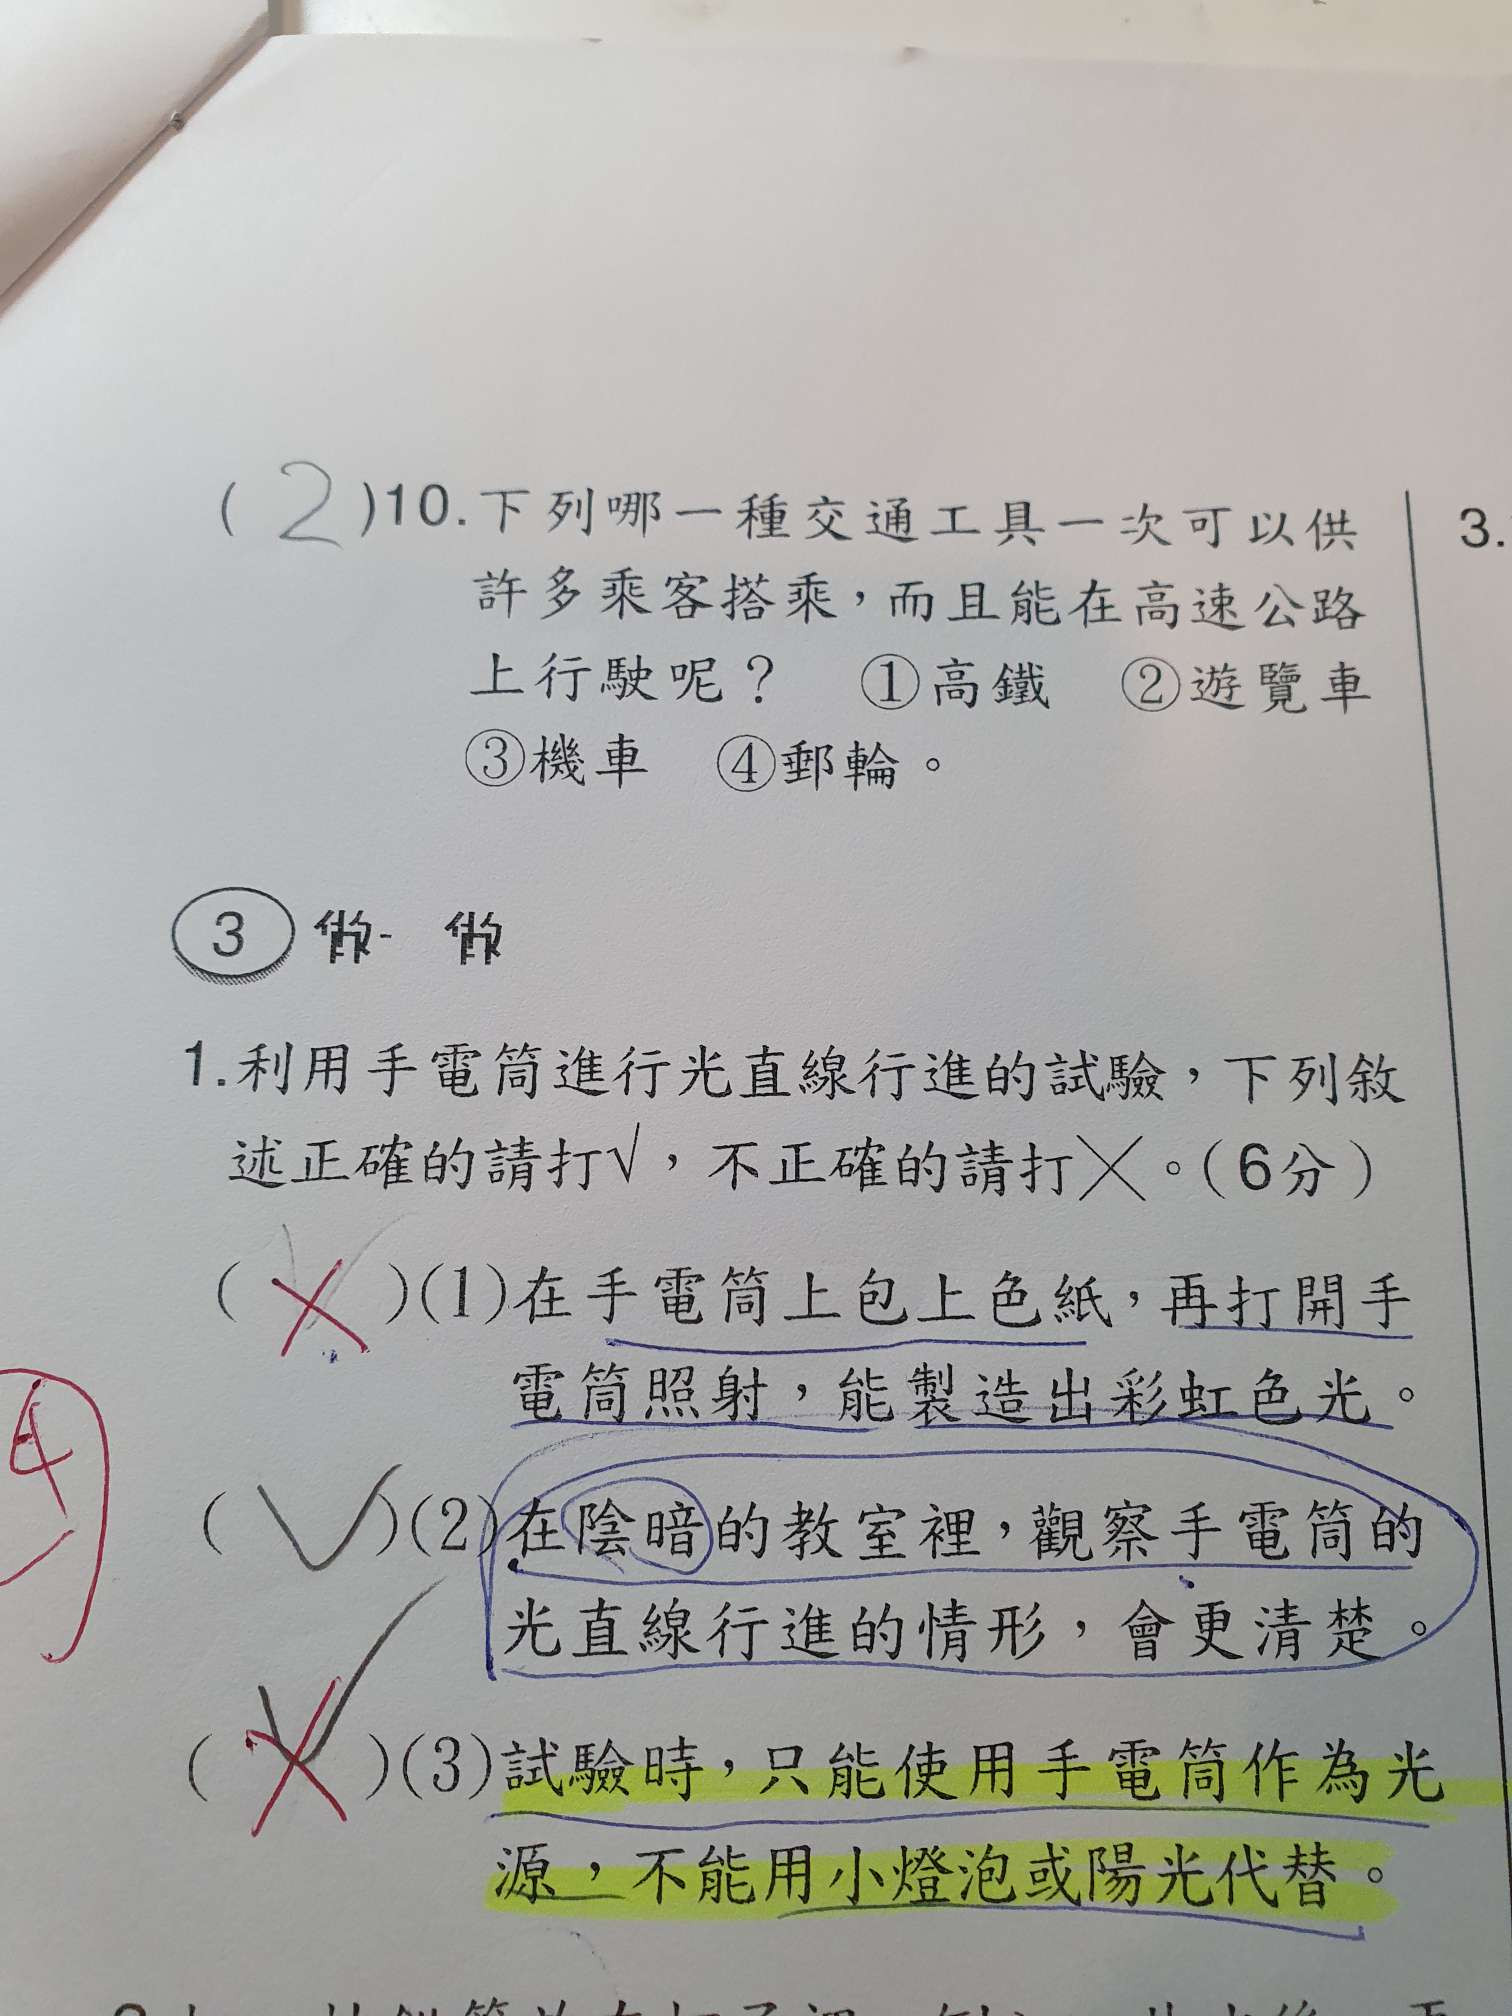 ( 2 )10.下列哪一種交通工具一次可以供
3.
許多乘客搭乘，而且能在高速公路
上行駛呢？ ①高鐵 ②遊覽車
③機車 ④郵輪。
3 做一做
1.利用手電筒進行光直線行進的試驗，下列敘
述正確的請打√，不正確的請打╳。(6分)
( ╳ )(1)在手電筒上包上色紙，再打開手
電筒照射，能製造出彩虹色光。
4
( √ )(2)在陰暗的教室裡，觀察手電筒的
光直線行進的情形，會更清楚。
( ╳ )(3)試驗時，只能使用手電筒作為光
源，不能用小燈泡或陽光代替。